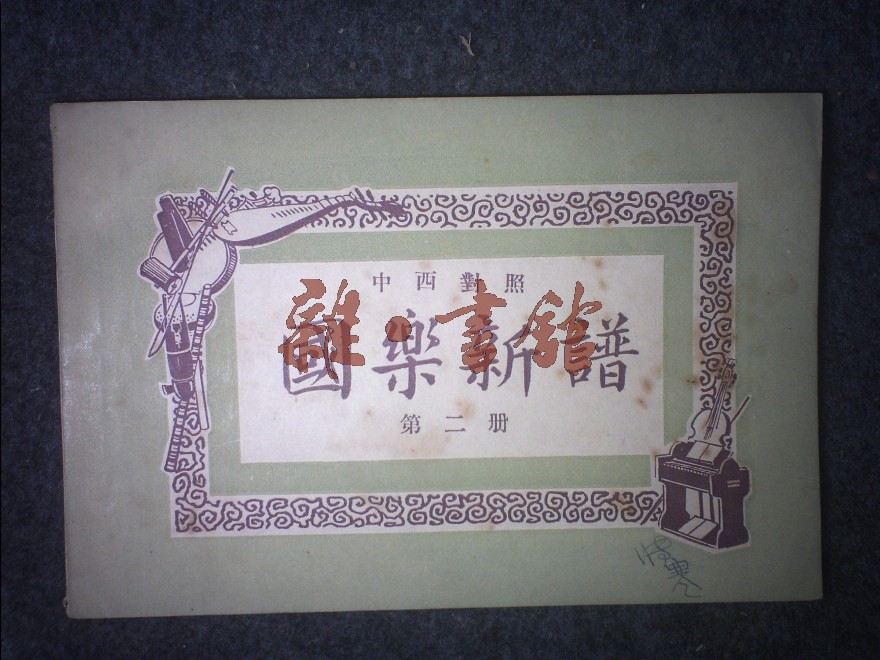 中西對照
雜·書舘
國樂新譜
第二册